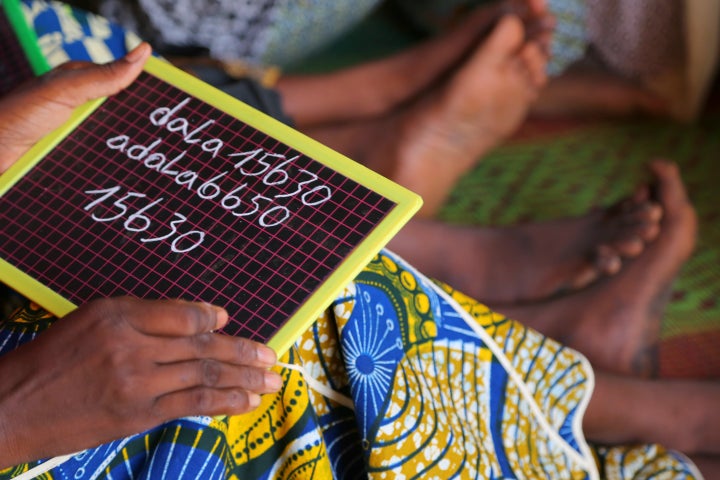 dala 15630
adala 6650
15630